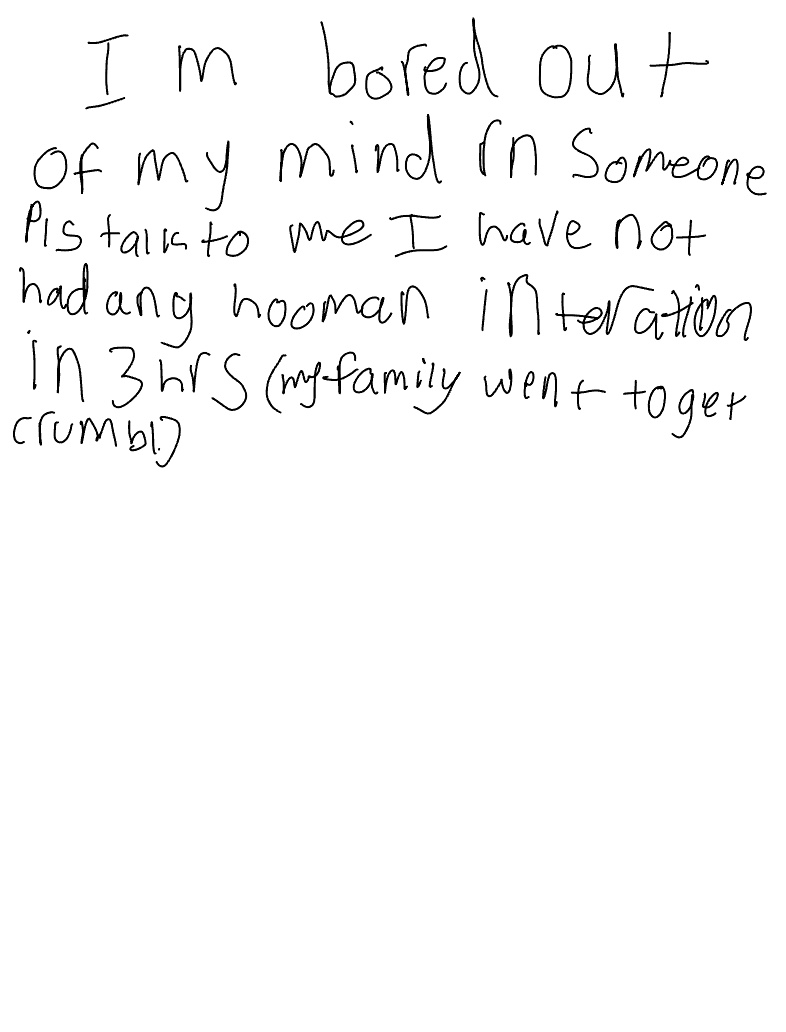 I m bored out
of my mind rn someone
Pls talk to me I have not
had any hooman interation
in 3 hrs (my family went to get
crumbl)